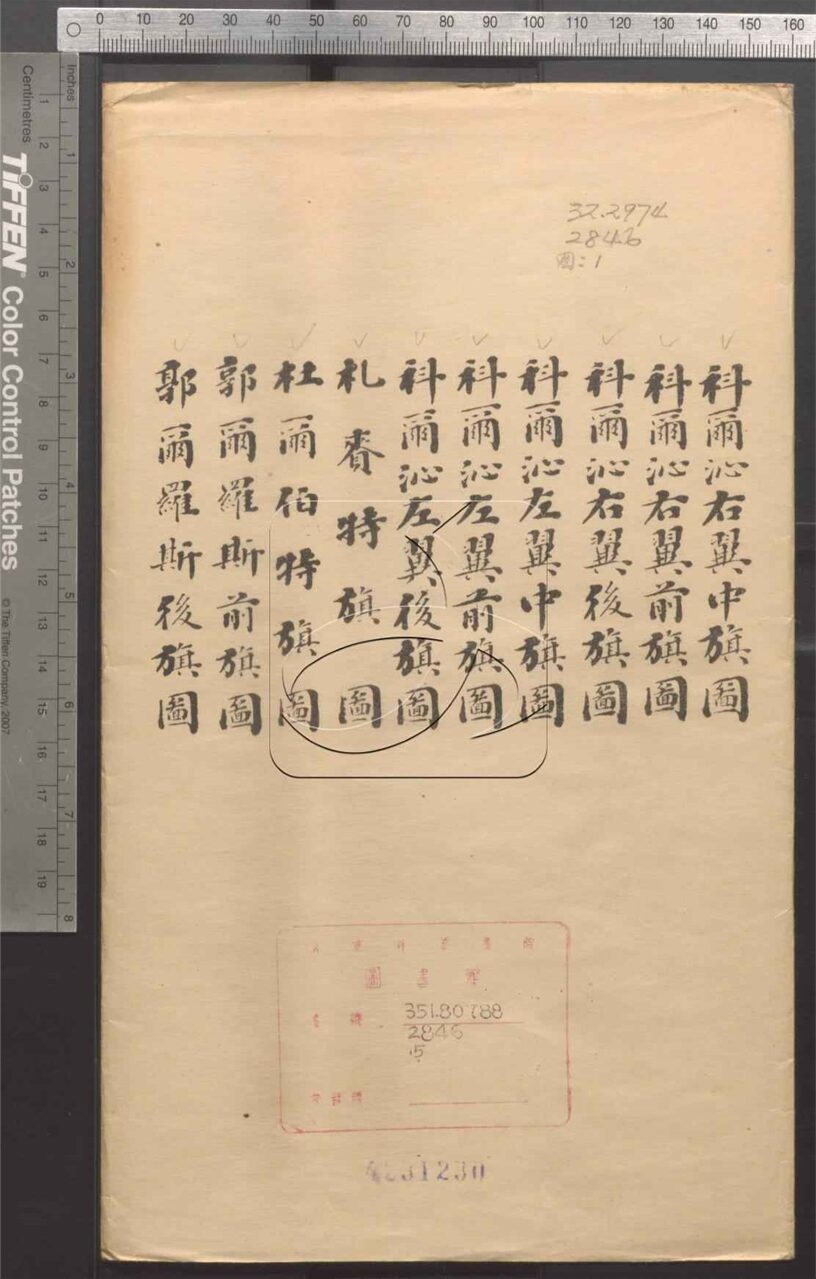 0 10 20 30 40 50 60 70 80 90 100 110 120 130 140 150 160
inches
Centimetres
1 2 3 4 5 6 7 8
1 2 3 4 5 6 7 8 9 10 11 12 13 14 15 16 17 18 19
TIFFEN® Color Control Patches
© The Tiffen Company, 2007
32.2974
2846
圖:1
科爾沁右翼中旗圖
科爾沁右翼前旗圖
科爾沁右翼後旗圖
科爾沁左翼中旗圖
科爾沁左翼前旗圖
科爾沁左翼後旗圖
札賚特旗圖
杜爾伯特旗圖
郭爾羅斯前旗圖
郭爾羅斯後旗圖
圖書
351.80788
2846
.5
31230